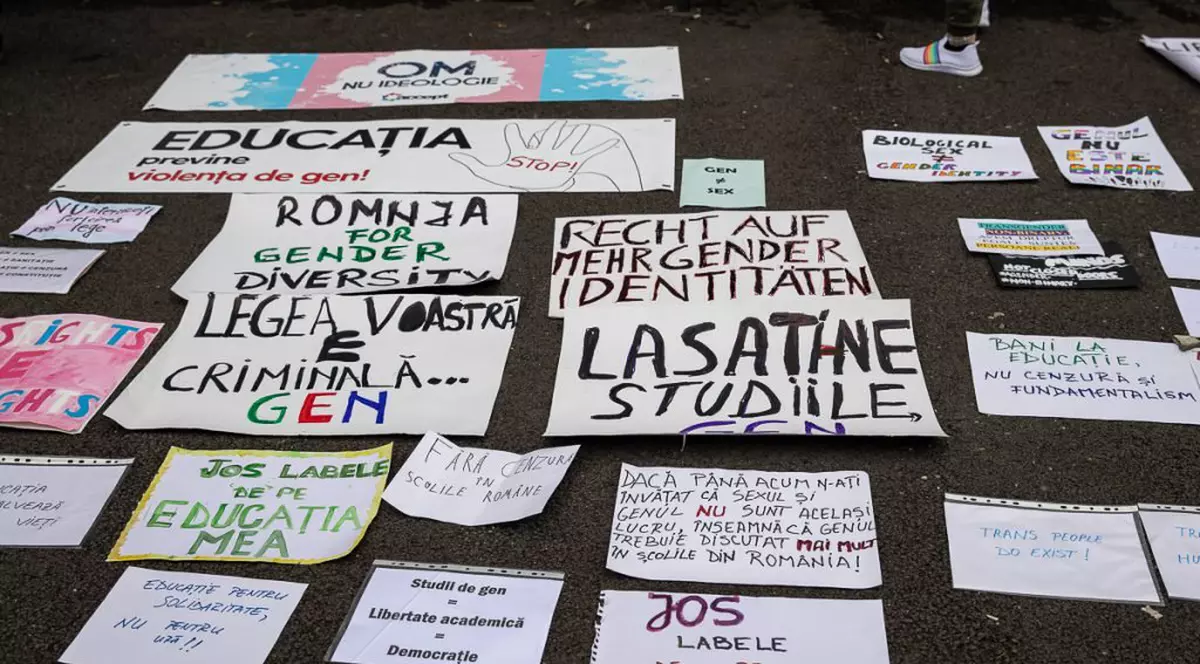 OM
NU IDEOLOGIE
accept
EDUCAȚIA
previne
violența de gen!
STOP!
GEN
≠
SEX
BIOLOGICAL
SEX
≠
GENDER IDENTITY
GENUL
NU
ESTE
BINAR
ROMNJA
FOR
GENDER
DIVERSITY
RECHT AUF
MEHR GENDER
IDENTITÄTEN
TRANSGENDER
NON-BINARY
AVEM DREPTUL
EGALE SUNTEM
NON-BINARY
LEGEA VOASTRĂ
E
CRIMINALĂ...
GEN
LASAȚINE
STUDIILE
GEN
RIGHTS
RIGHTS
BANI LA
EDUCAȚIE,
NU CENZURĂ ȘI
FUNDAMENTALISM
JOS LABELE
DE PE
EDUCAȚIA
MEA
FĂRĂ CENZURĂ
ÎN
ȘCOLILE ROMÂNE
DACĂ PÂNĂ ACUM N-AȚI
ÎNVĂȚAT CĂ SEXUL ȘI
GENUL NU SUNT ACELAȘI
LUCRU, ÎNSEAMNĂ CĂ GENUL
TREBUIE DISCUTAT MAI MULT
ÎN ȘCOLILE DIN ROMÂNIA!
TRANS PEOPLE
DO EXIST!
EDUCAȚIE PENTRU
SOLIDARITATE,
NU PENTRU
URĂ!!
Studii de gen
=
Libertate academică
=
Democrație
JOS
LABELE